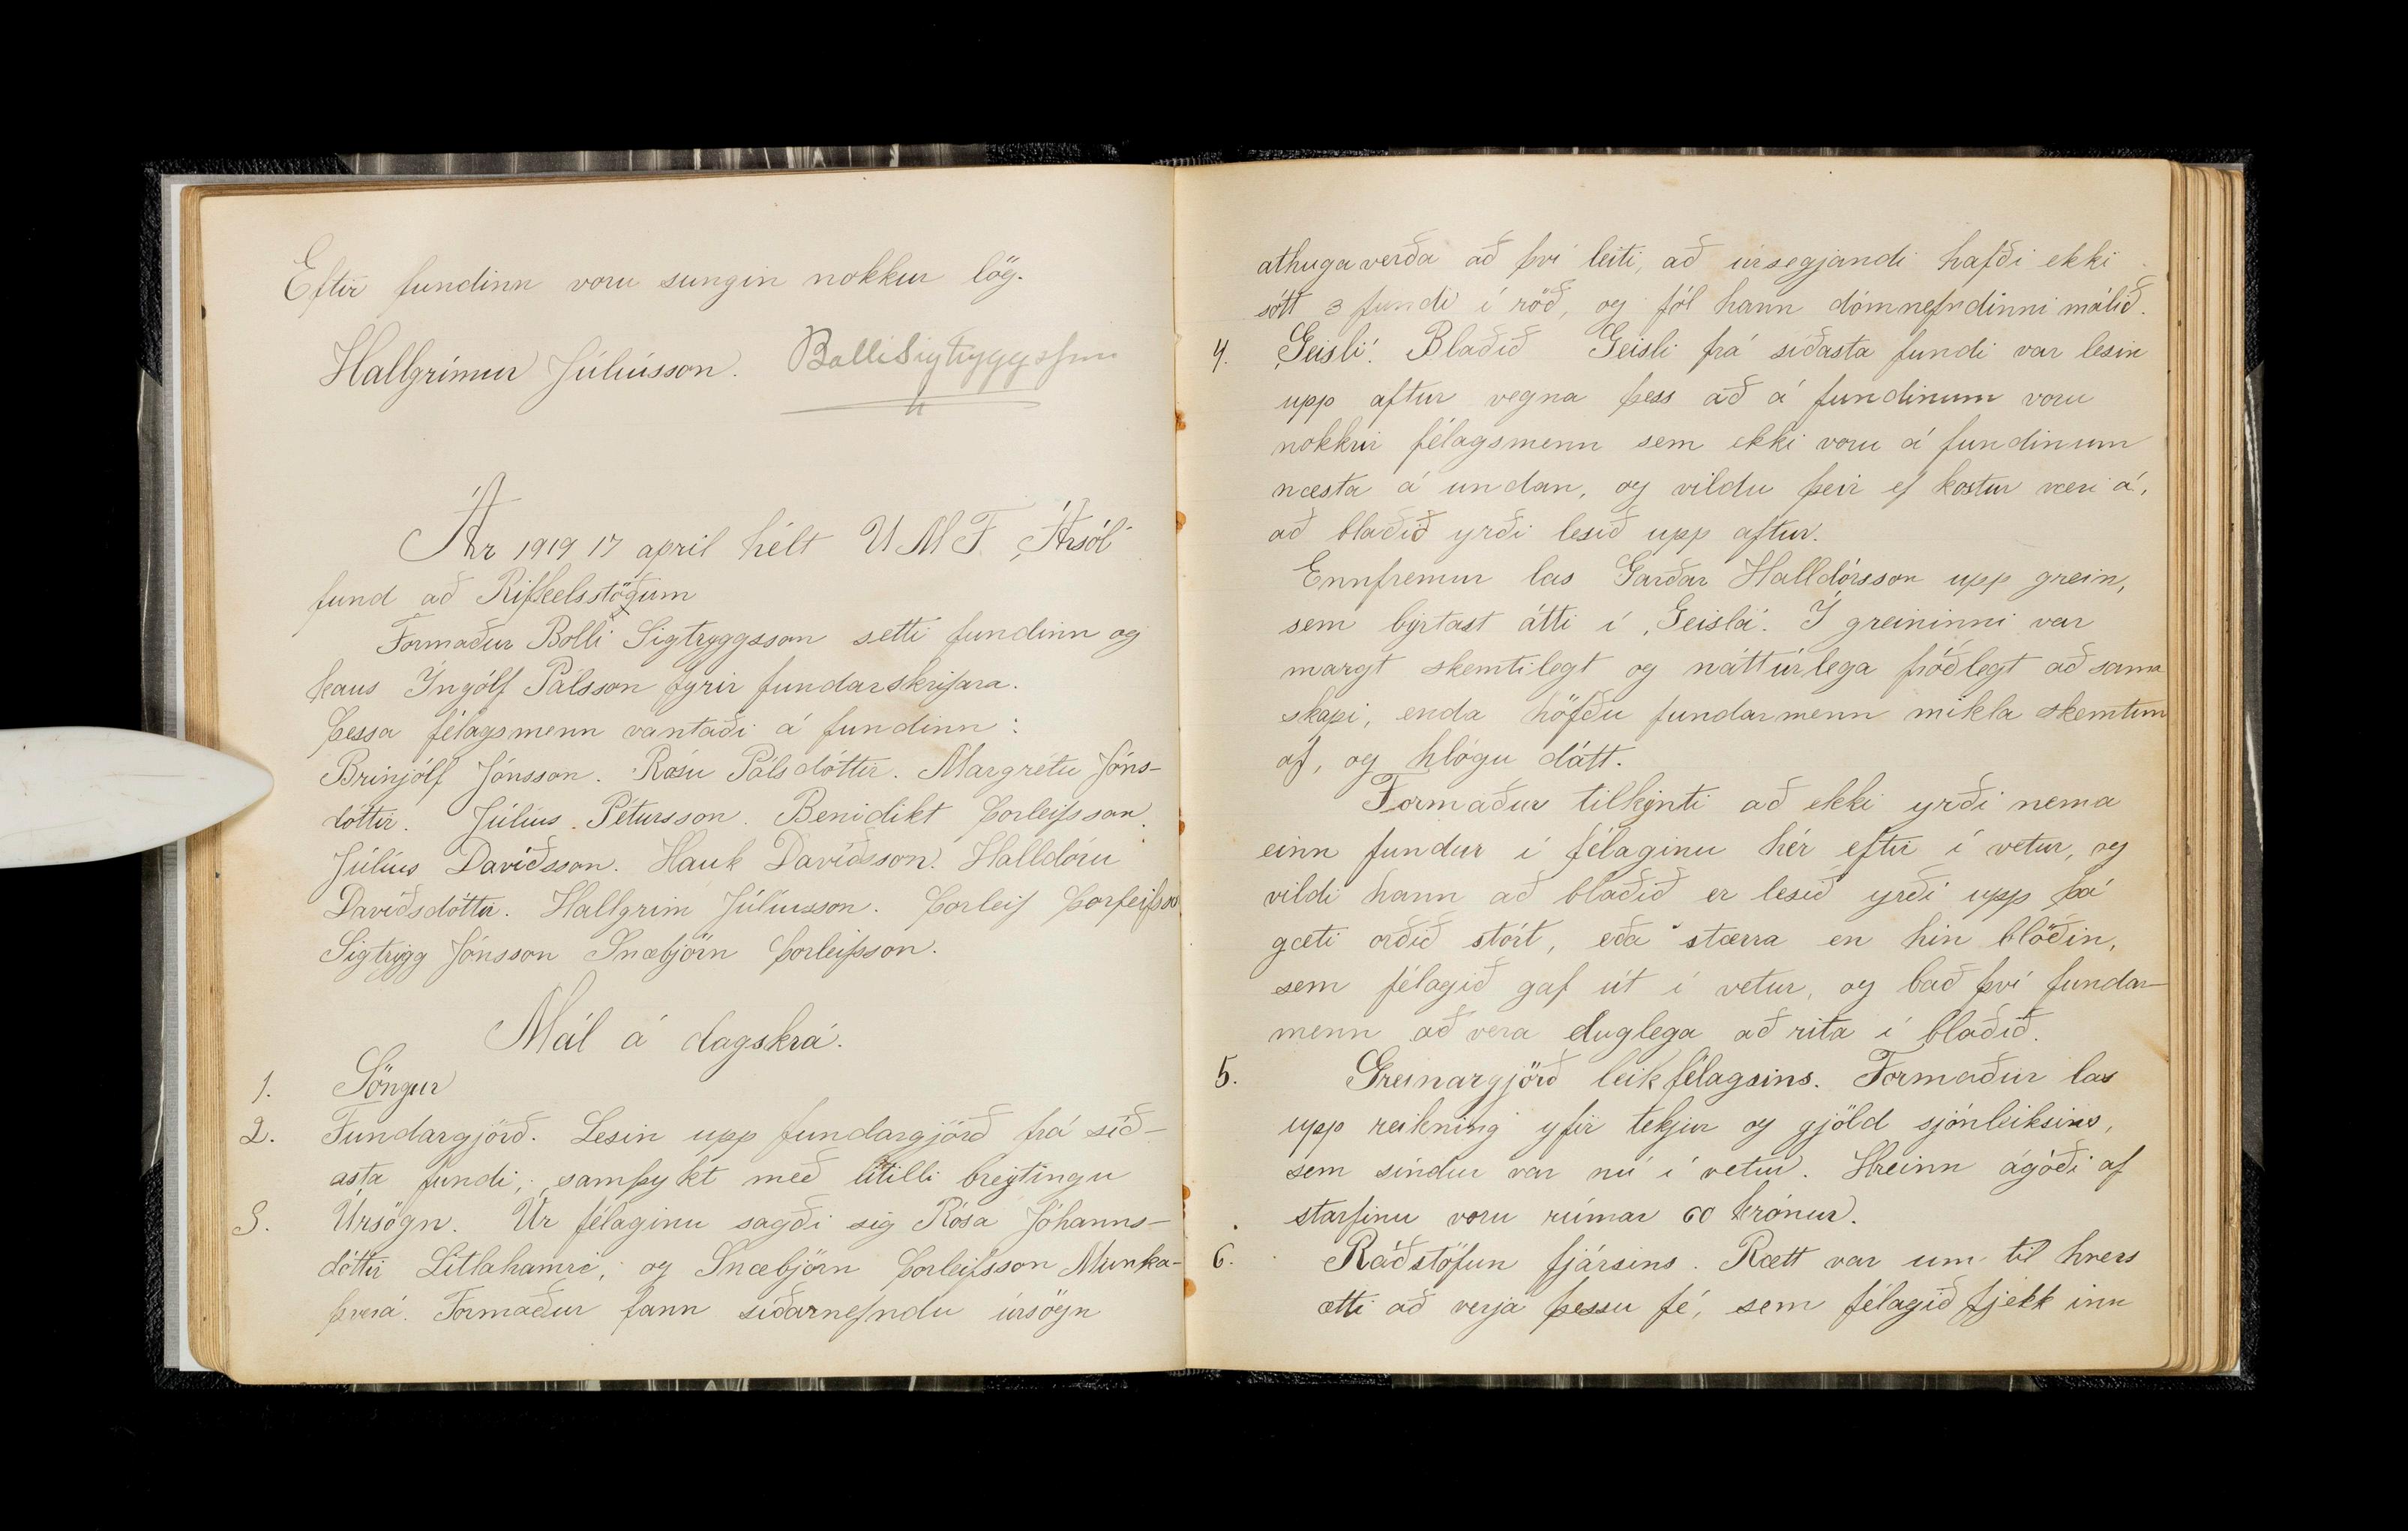 Eftir fundinn voru sungin nokkur lög.
Hallgrímur Júlíusson. Bolli Sigtryggsson
Ár 1919 17 april hélt U M F „Ársól“
fund að Rifkelsstöðum
Formaður Bolli Sigtryggsson setti fundinn og
kaus Ingólf Pálsson fyrir fundarskrifara.
Þessa félagsmenn vantaði á fundinn:
Brinjólf Jónsson. Rósu Pálsdóttir. Margrétu Jóns-
dóttir. Júlíus Pétursson. Benidikt Þorleifsson.
Júlíus Davíðsson. Hauk Davíðsson. Halldóru
Davíðsdóttir. Hallgrím Júlíusson. Þorleif Þorleifsso
Sigtrygg Jónsson Snæbjörn Þorleifsson.
Mál á dagskrá.
1. Söngur
2. Fundargjörð. Lesin upp fundargjörð frá síð-
asta fundi, samþykt með lítilli breytingu
3. Úrsögn. Úr félaginu sagði sig Rósa Jóhanns-
dóttir Litlahamri, og Snæbjörn Þorleifsson Munka-
þverá. Formaður fann síðarnefndu úrsögn
athugaverða að því leiti, að úrsegjandi hafði ekki
sótt 3 fundi í röð, og fól hann dómnefndinni málið.
4. „Geisli“. Blaðið Geisli frá síðasta fundi var lesin
upp aftur vegna þess að á fundinum voru
nokkrir félagsmenn sem ekki voru á fundinum
næsta á undan, og vildu þeir ef kostur væri á,
að blaðið yrði lesið upp aftur.
Ennfremur las Garðar Halldórsson upp grein,
sem byrtast átti í „Geisla“. Í greininni var
margt skemtilegt og náttúrlega fróðlegt að sama
skapi, enda höfðu fundarmenn mikla skemtun
af, og hlógu dátt.
Formaður tilkynti að ekki yrði nema
einn fundur í félaginu hér eftir í vetur, og
vildi hann að blaðið er lesið yrði upp þá
gæti orðið stórt, eða stærra en hin blöðin,
sem félagið gaf út í vetur, og bað því fundar-
menn að vera duglega að rita í blaðið.
5. Greinargjörð leikfélagsins. Formaður las
upp reikning yfir tekjur og gjöld sjónleiksins,
sem síndur var nú í vetur. Hreinn ágóði af
starfinu voru rúmar 60 krónur.
6. Ráðstöfun fjársins. Rætt var um til hvers
ætti að verja þessu fé, sem félagið fjekk inn